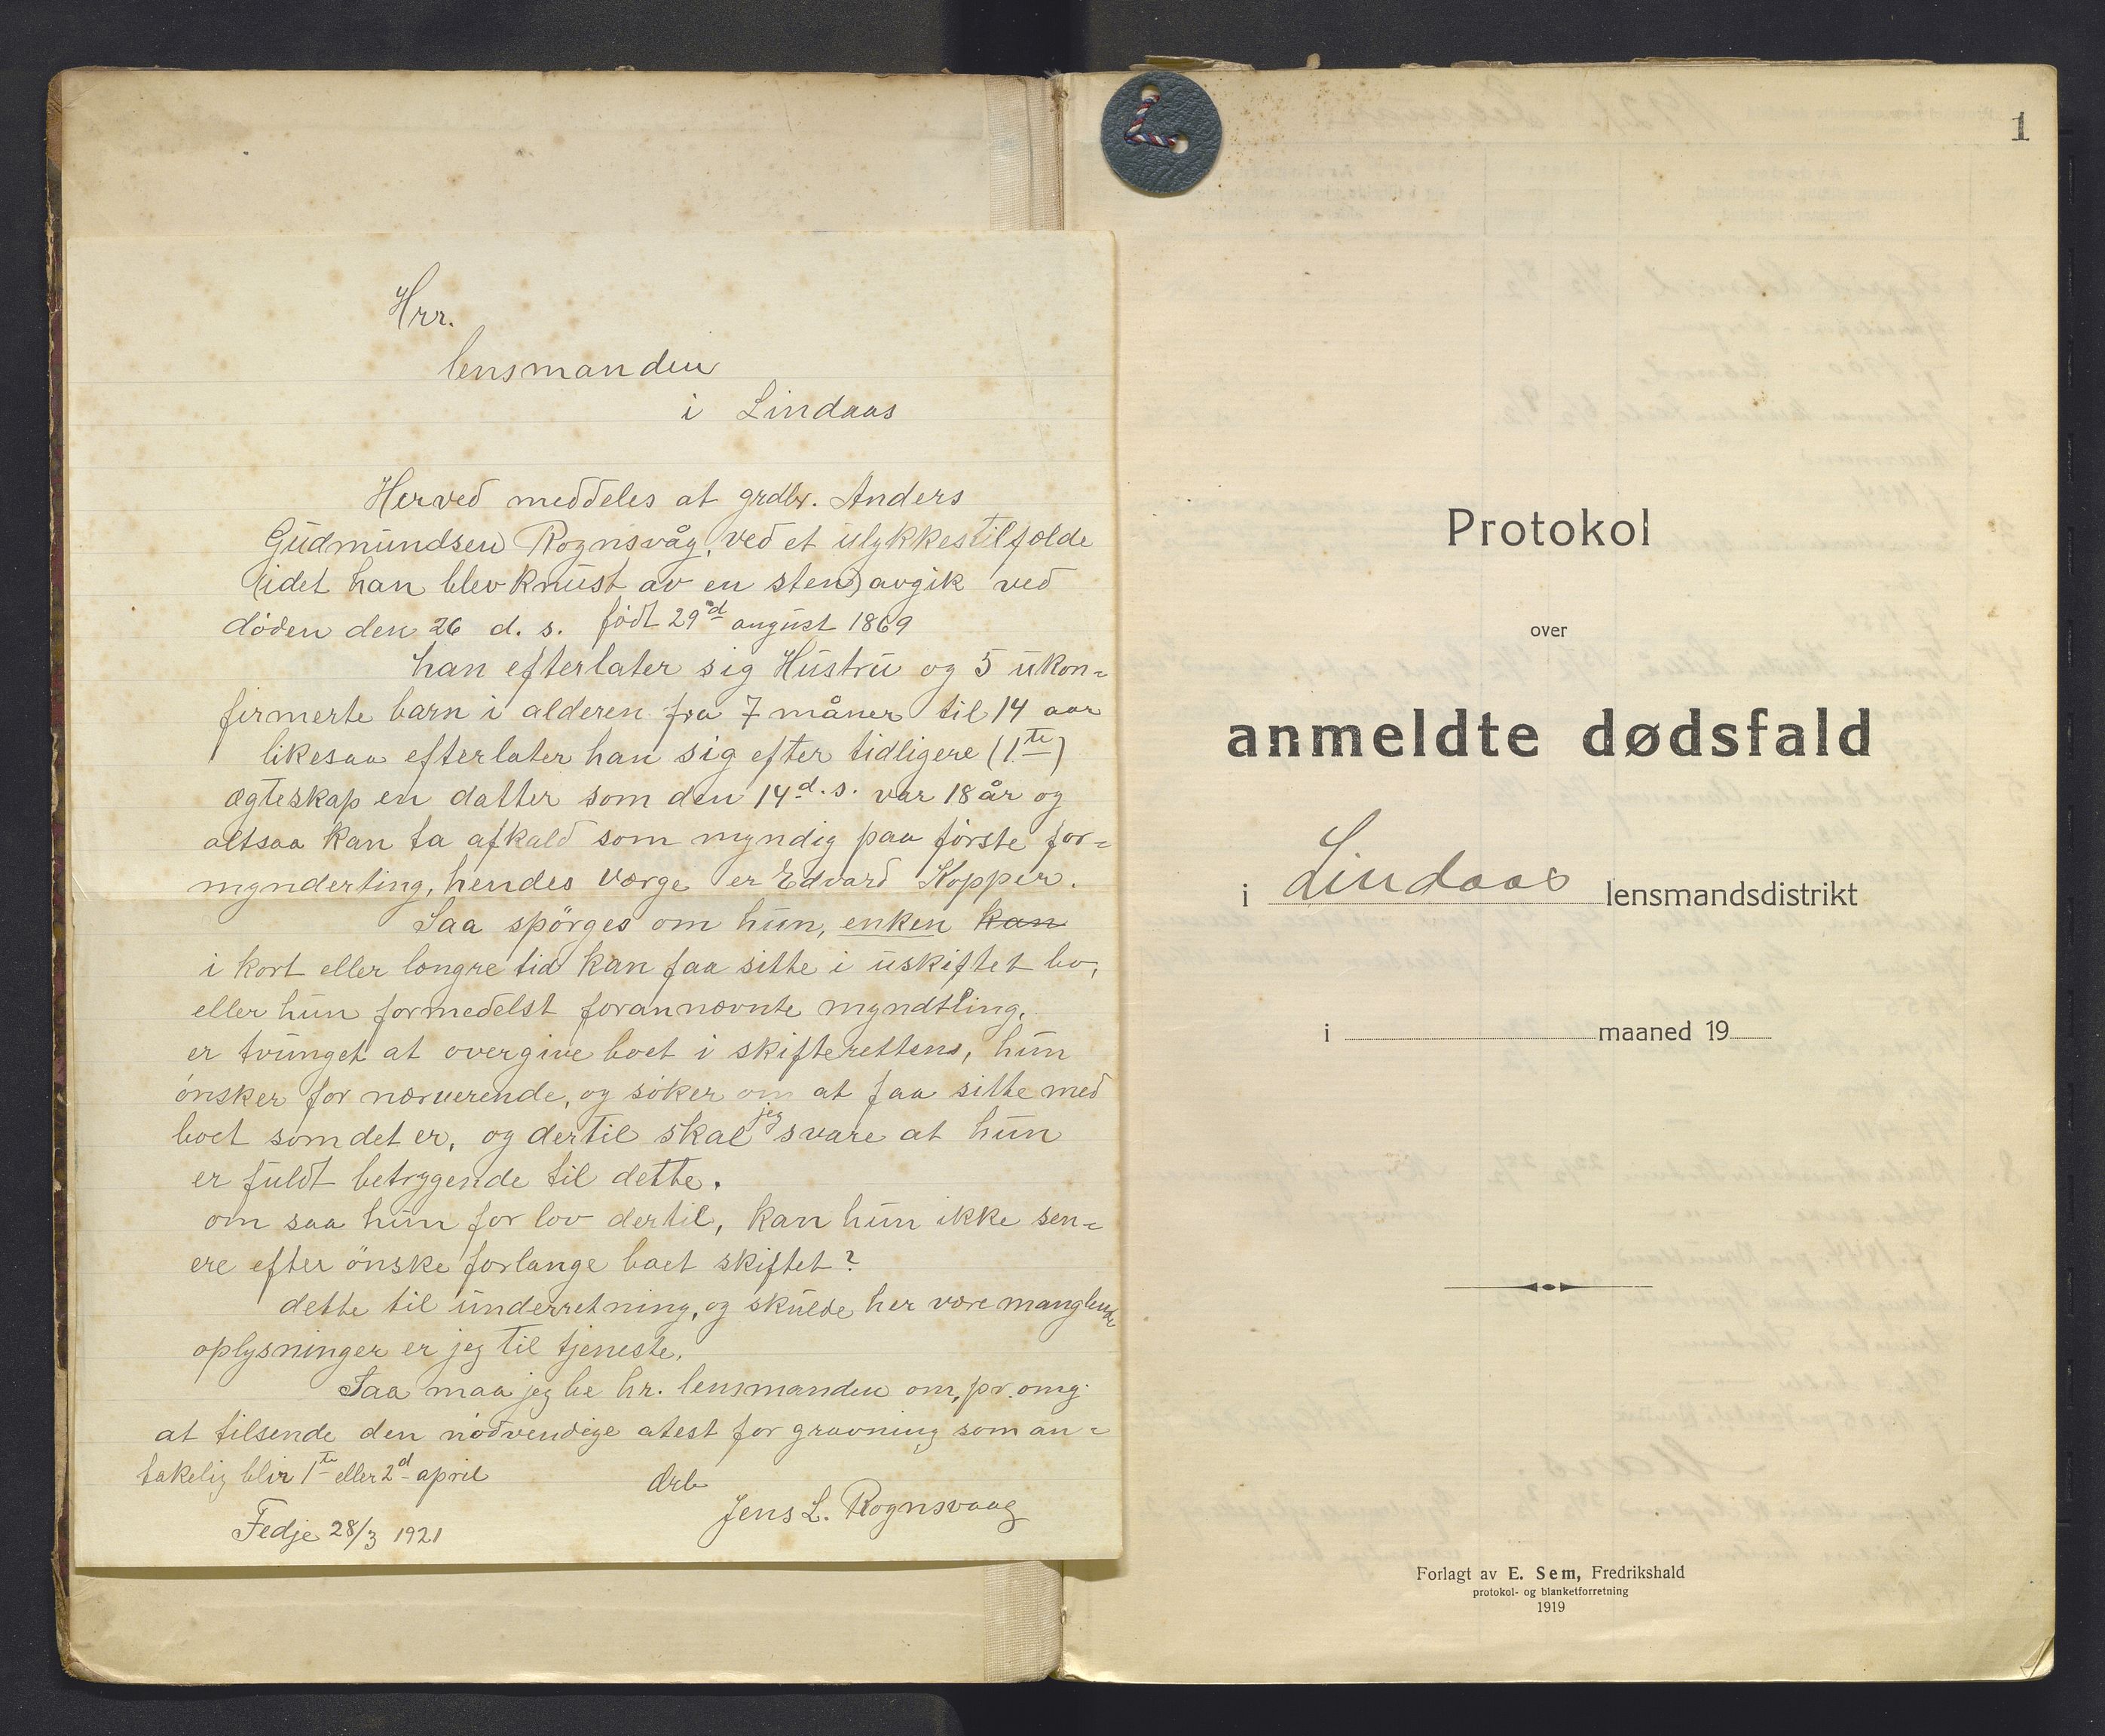 Hrr.
lensmanden
i Lindaas
Herved meddeles at grdbr. Anders
Gudmundsen Rognsvåg, ved et ulykkestilfælde
(idet han blev knust av en sten) avgik ved
døden den 26 d. s. født 29d august 1869
han efterlater sig Hustru og 5 ukon=
firmerte barn i alderen fra 7 måner til 14 aar
likesaa efterlater han sig efter tidligere (1te)
ægteskap en datter som den 14d. s. var 18 år og
altsaa kan ta afkald som myndig paa første for=
mynderting, hendes værge er Edvard Kopper.
Saa spørges om hun, enken kan
i kort eller længre tid kan faa sitte i uskiftet bo,
eller hun formedelst forannævnte myndtling,
er tvunget at overgive boet i skifterettens, hun
ønsker for nærverende, og søker om at faa sitte med
boet som det er, og dertil skal jeg svare at hun
er fuldt betryggende til dette.
om saa hun for lov dertil, kan hun ikke sen=
ere efter ønske forlange boet skiftet?
dette til underretning, og skulde her være manglende
oplysninger er jeg til tjeneste.
Saa maa jeg be hr. lensmanden om, pr. omg.
at tilsende den nødvendige atest for gravning som an=
takelig blir 1te eller 2d april
Ærb
Jens L. Rognsvaag
Fedje 28/3 1921
1
Protokol
over
anmeldte dødsfald
i Lindaas lensmandsdistrikt
i maaned 19
Forlagt av E. Sem, Fredrikshald
protokol- og blanketforretning
1919